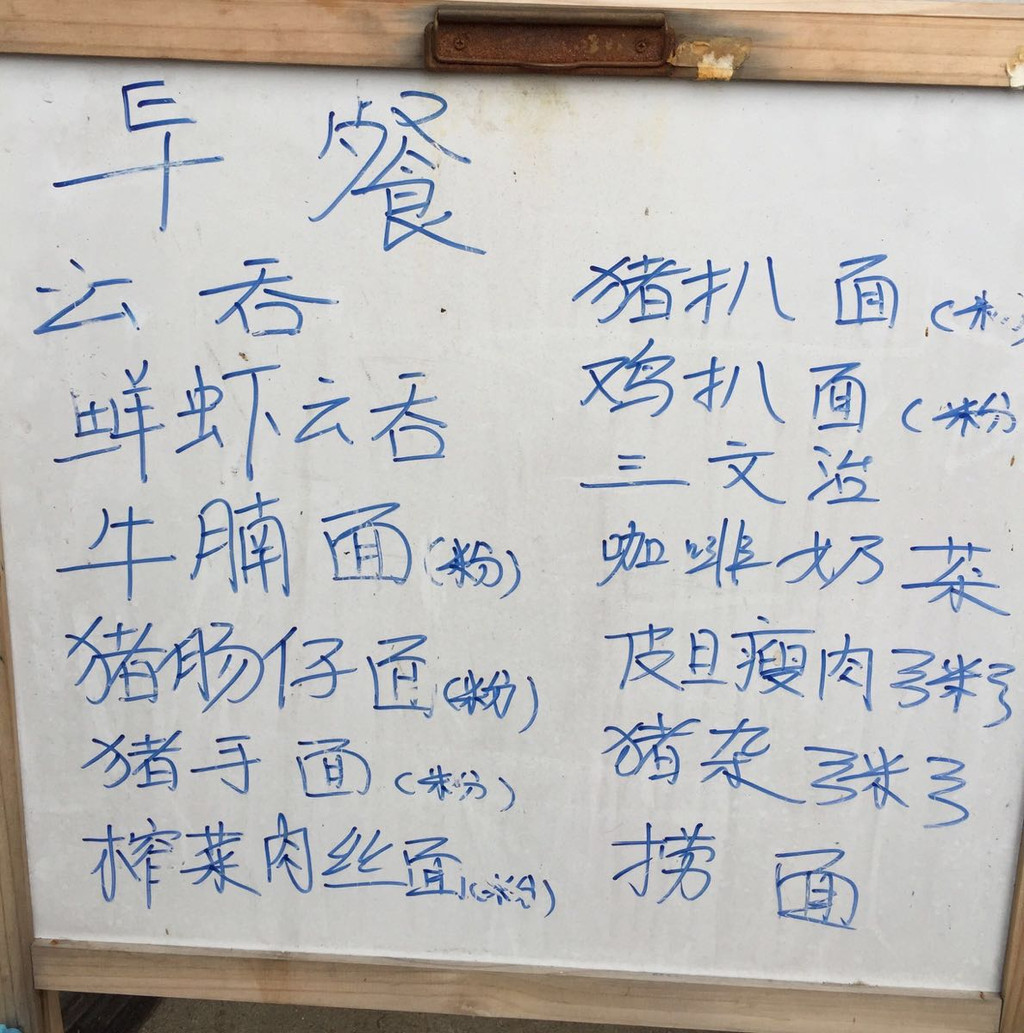 早餐
云吞
鲜虾云吞
牛腩面(粉)
猪肠仔面(粉)
猪手面(粉)
榨菜肉丝面(粉)
猪扒面(粉)
鸡扒面(粉
三文治
咖啡奶茶
皮旦瘦肉粥
猪杂粥
捞面